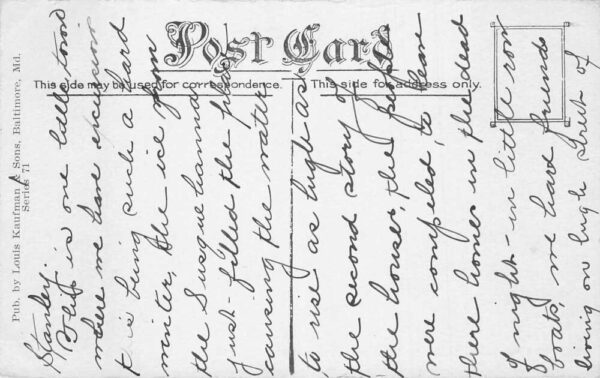 Post Card
This side may be used for correspondence.
This side for address only.
Pub. by Louis Kaufman & Sons, Baltimore, Md.
Series 71
Stanley:
This is one little town
where we have excursions
it is being such a hard
winter, the ice from
the Susquehanna
just filled the place
causing the water
to rise as high as
the second story of
the houses, the people
were compeled, to leave
there homes in the dead
of night - in little row
boats, we have friends
living on high street of